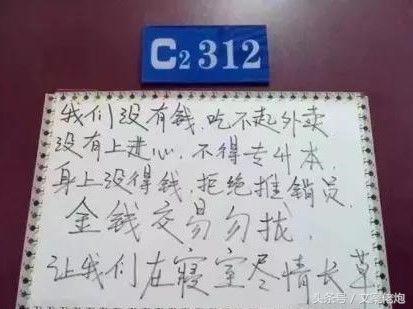 C2 312
我们没有钱.吃不起外卖
没有上进心.不得专升本.
身上没得钱.拒绝推销员.
金钱交易勿扰.
让我们在寝室尽情长草
头条号/文案佬炮